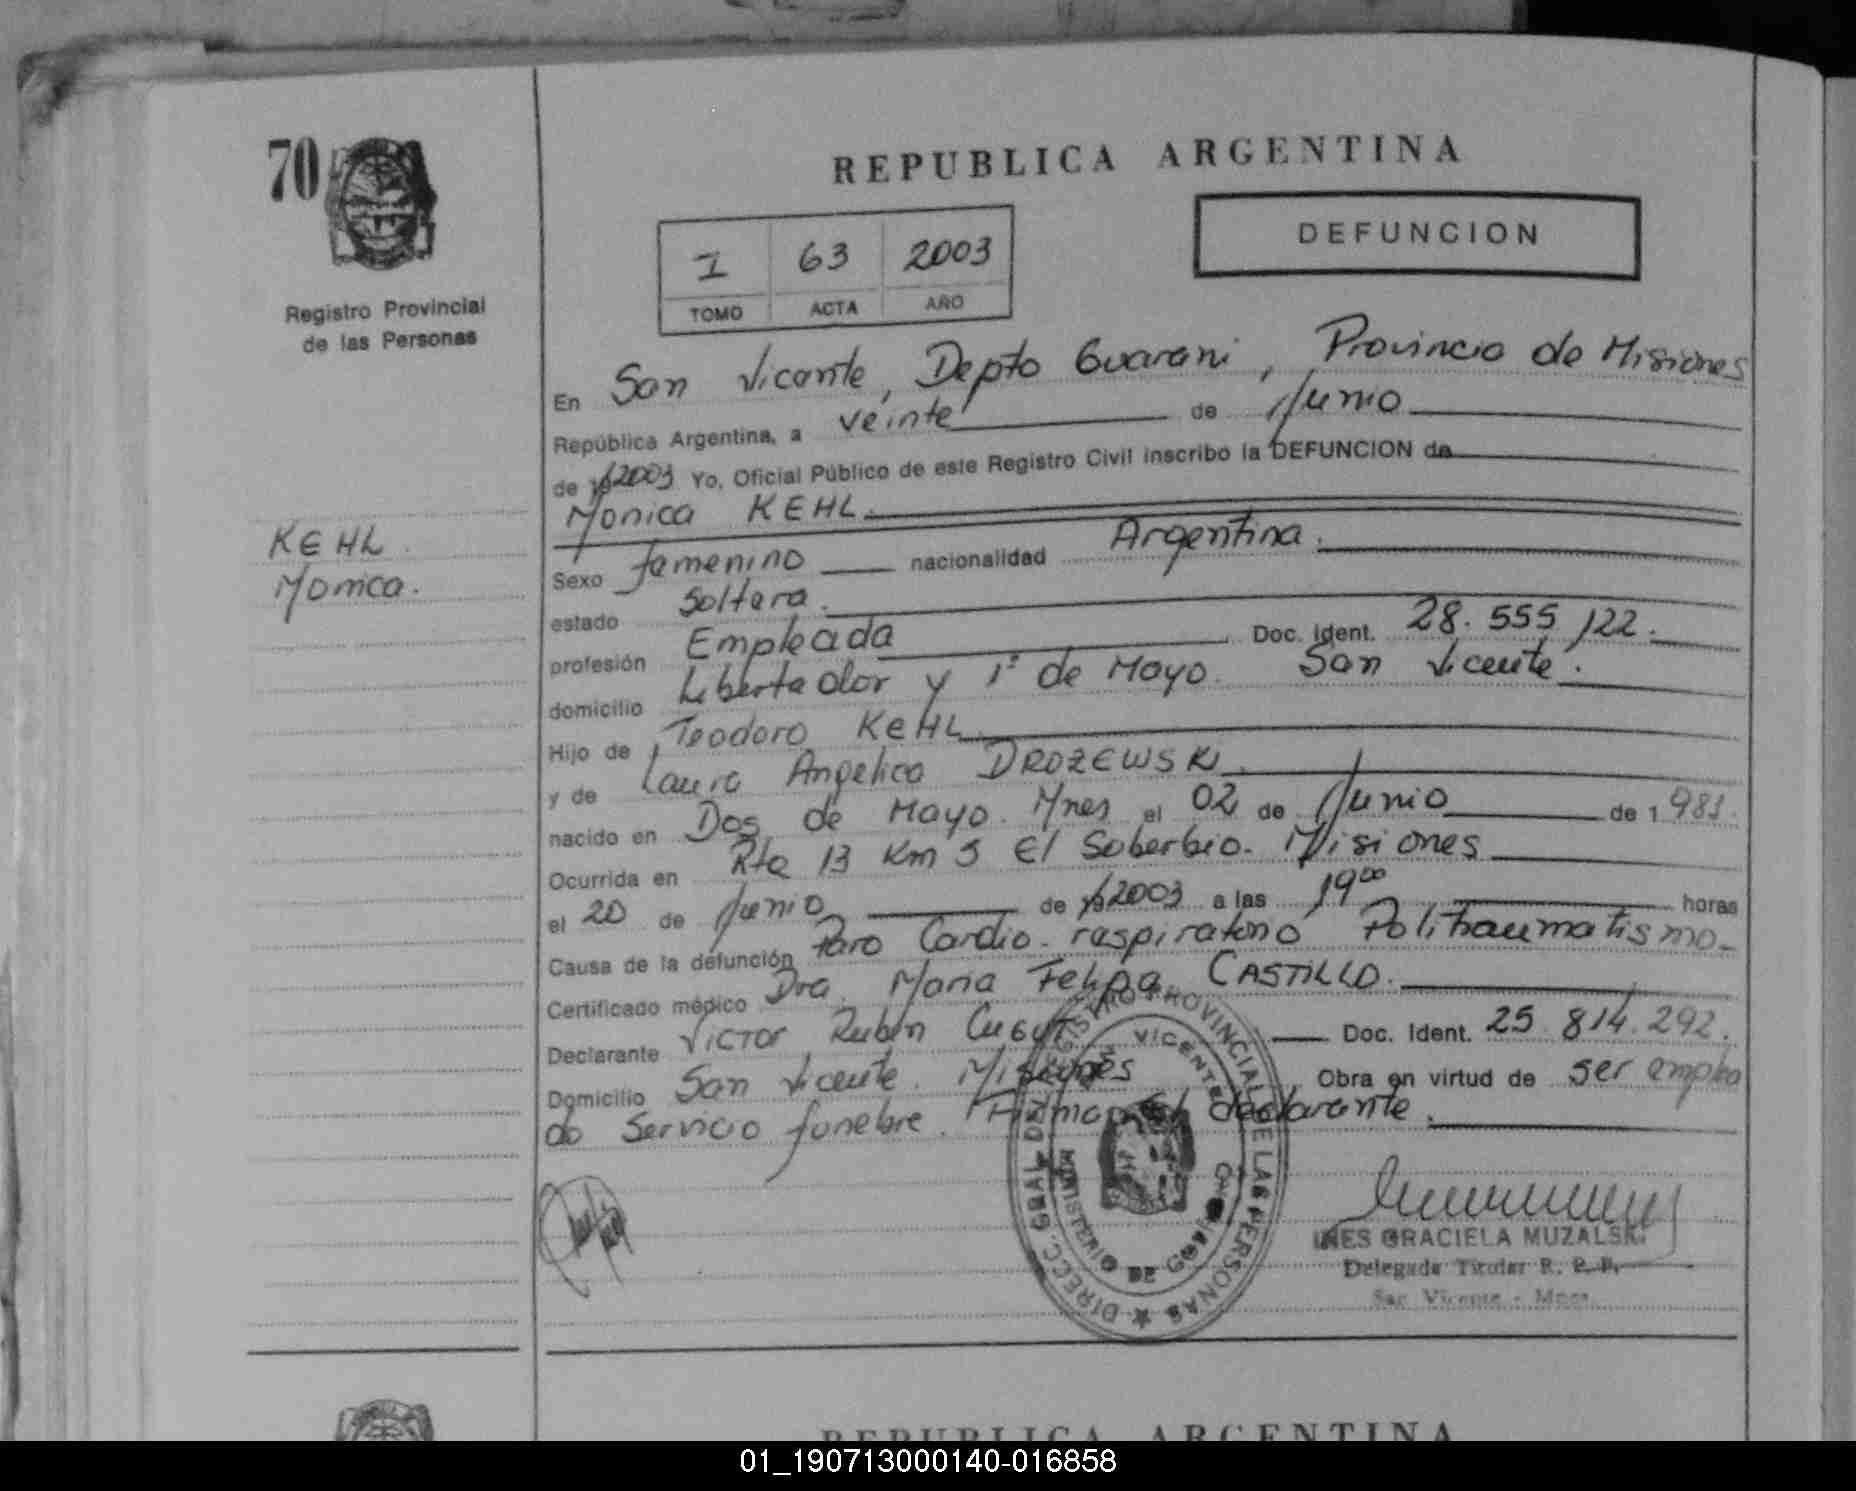 70
REPUBLICA ARGENTINA
DEFUNCION
I 63 2003
TOMO ACTA AÑO
Registro Provincial
de las Personas
KEHL.
Monica.
En San Vicente, Depto Guarani, Provincia de Misiones
República Argentina, a veinte de Junio
de 2003 Yo, Oficial Público de este Registro Civil inscribo la DEFUNCION de
Monica KEHL.
Sexo femenino nacionalidad Argentina.
estado Soltera.
profesión Empleada Doc. Ident. 28.555,122.
domicilio Libertador y 1° de Mayo. San Vicente.
Hijo de Teodoro KEHL
y de Laura Angelica DROZEWSKI.
nacido en Dos de Mayo. Mnes el 02 de Junio de 1981.
Ocurrida en Rta 13 Km 5 El Soberbio. Misiones
el 20 de Junio de 2003 a las 19⁰⁰ horas
Causa de la defunción Paro Cardio-respiratorio Politraumatismo-
Certificado médico Dra. Maria Felipa CASTILLO.
Declarante Victor Rubén Doc. Ident. 25.814.292.
Domicilio San Vicente. Misiones Obra en virtud de ser emplea
do Servicio funebre. Firma declarante.
DIRECC. GRAL DEL REGISTRO PROVINCIAL DE LAS PERSONAS
MINISTERIO DE GOBIERNO
VICENTE
INES GRACIELA MUZALSKI
Delegada Titular R. P. P.
San Vicente - Mnes.
REPUBLICA ARGENTINA
01_190713000140-016858